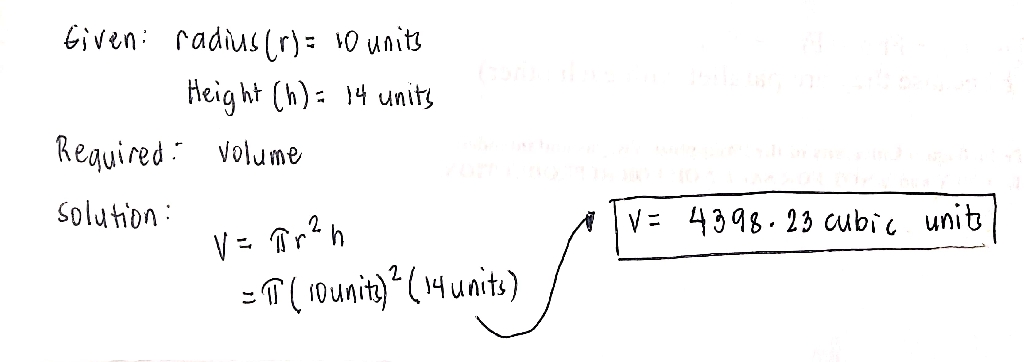 Given: radius(r) = 10 units
Height (h) = 14 units
Required: volume
solution:
V = πr²h
= π(10units)²(14units)
V = 4398.23 cubic units